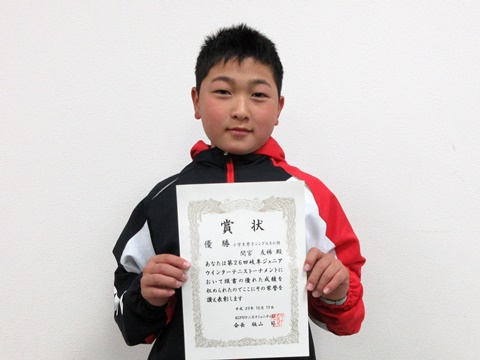 賞状
優勝 小学生男子シングルスの部
間宮 友稀 殿
あなたは第26回岐阜ジュニア
ウインターテニストーナメントに
おいて頭書の優れた成績を
収められたのでここにその栄誉を
讃え表彰します
平成
会長 板山